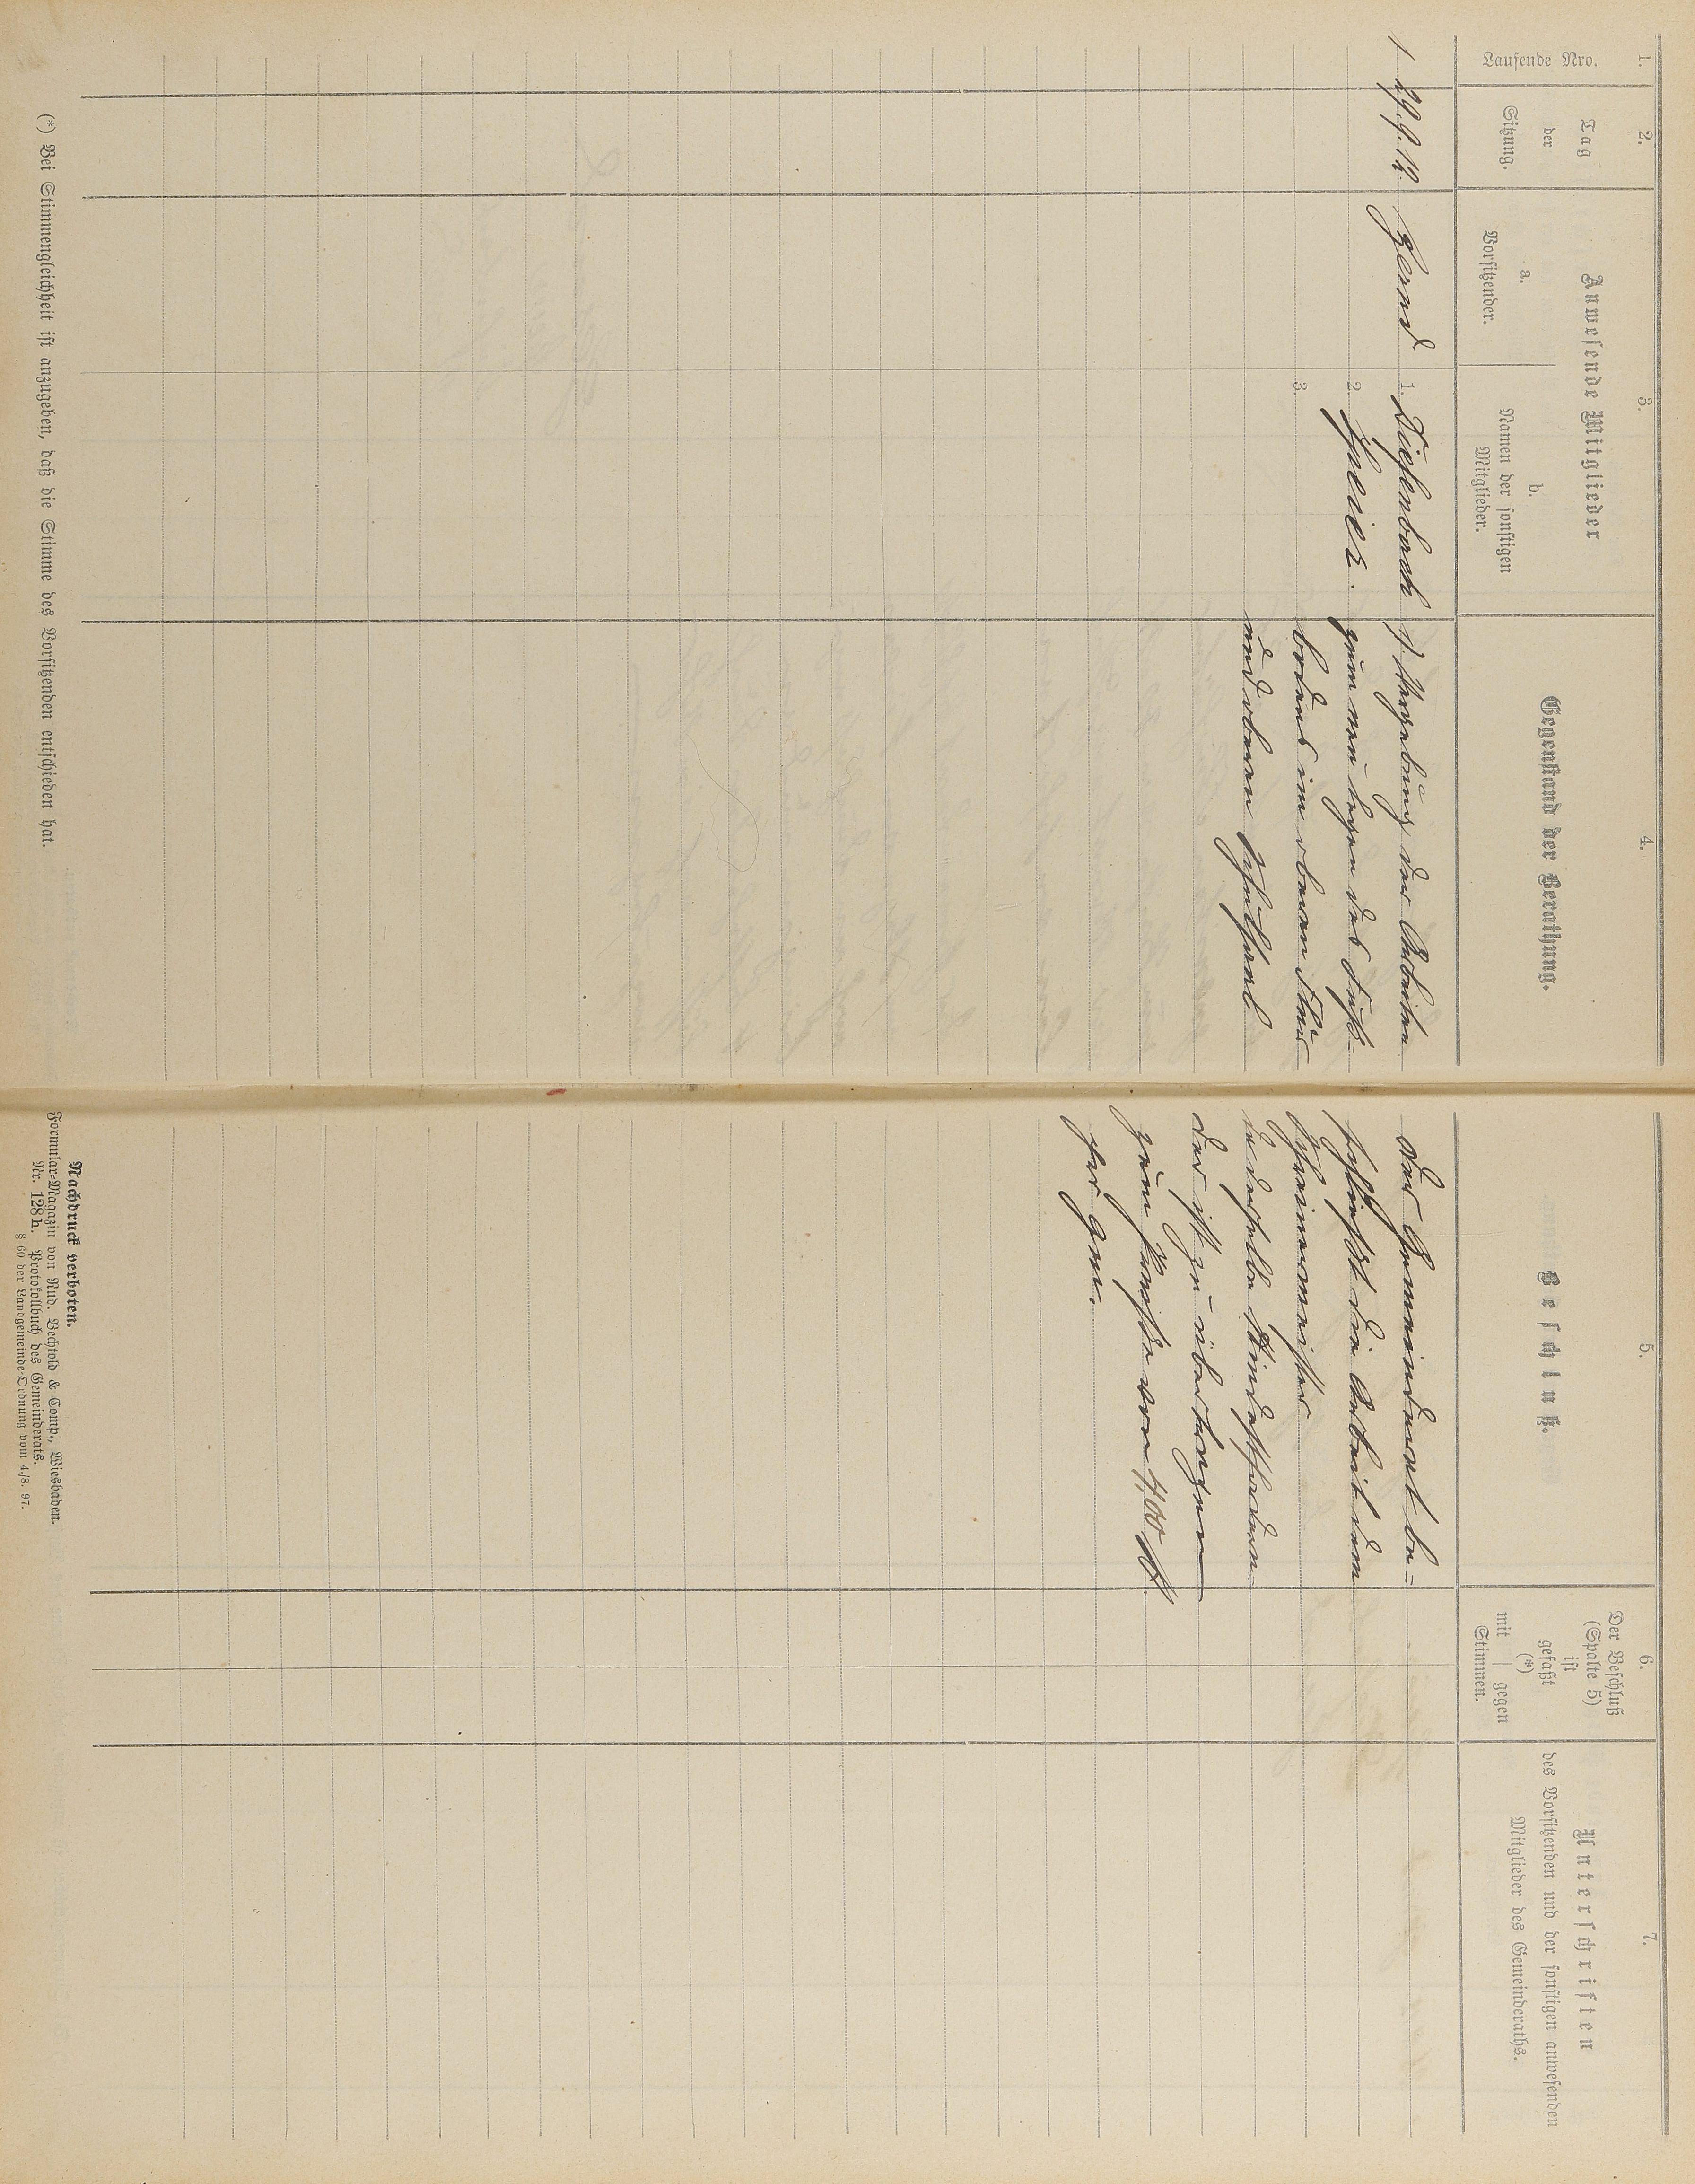 1.
Laufende Nro.
2.
Tag
der
Sitzung.
3.
Anwesende Mitglieder
a.
Vorsitzender.
b.
Namen der sonstigen
Mitglieder.
4.
Gegenstand der Berathung.
1 29.9.12.
1. Diefenbach
2.
3.
1) Vergebung der Arbeiten
zum neu legen des Fuß=
bodens im oberen Flur
und oberen Schulsaal
(*) Bei Stimmengleichheit ist anzugeben, daß die Stimme des Vorsitzenden entschieden hat.
5.
Beschluß.
6.
Der Beschluß
(Spalte 5)
ist
gefaßt
(*)
mit | gegen
Stimmen.
7.
Unterschriften
des Vorsitzenden und der sonstigen anwesenden
Mitglieder des Gemeinderaths.
Der Gemeinderat be=
schließt die Arbeit dem
Schreinermeister
da derselbe Mindestfordern=
der ist zu übertragen
zum Preise von 4,00 M
per qm.
Nachdruck verboten.
Formular=Magazin von Rud. Bechtold & Comp., Wiesbaden.
Nr. 128h. Protokollbuch des Gemeinderats.
§ 60 der Landgemeinde-Ordnung vom 4./8. 97.